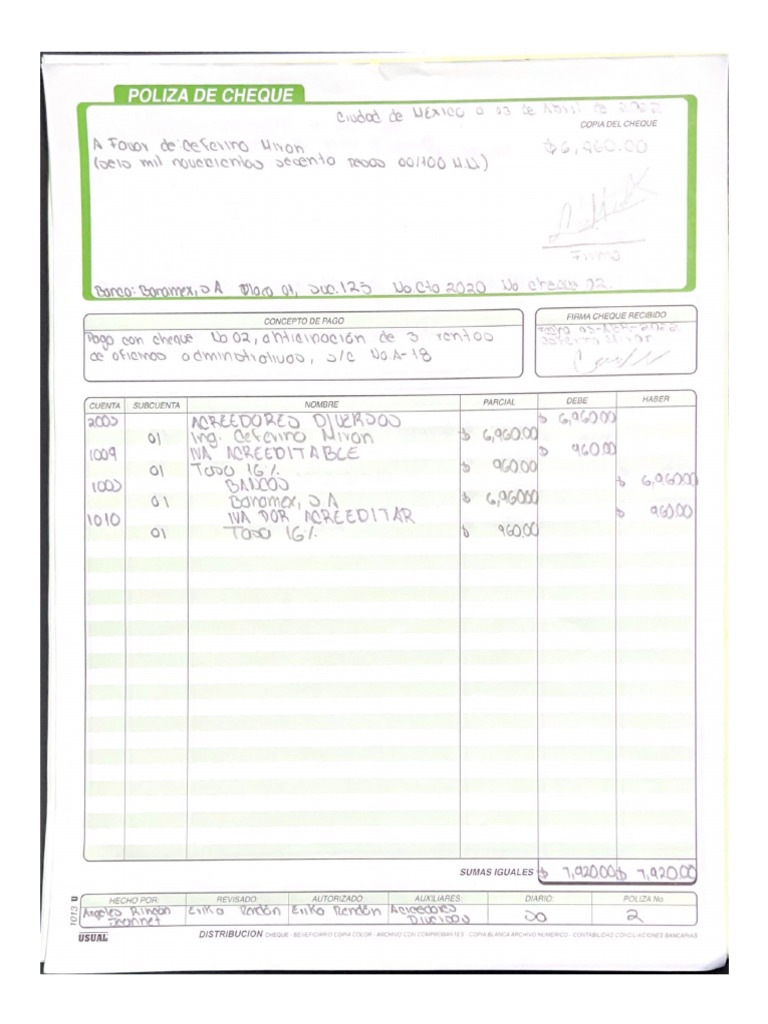 POLIZA DE CHEQUE
Ciudad de México a 03 de Abril de 2022
COPIA DEL CHEQUE
A Favor de Ceferino Miron
$6,960.00
(seis mil novecientos sesenta pesos 00/100 M.N)
Firma
Banco: Banamex, S.A Plaza 01, Suc. 123 No Cta 2020 No cheque 02.
CONCEPTO DE PAGO
FIRMA CHEQUE RECIBIDO
Pago con cheque No 02, anticipación de 3 rentas
de oficinas administrativas, s/c No. A-18
CUENTA SUBCUENTA NOMBRE PARCIAL DEBE HABER
2003 ACREEDORES DIVERSOS $ 6,960.00
01 Ing. Ceferino Miron $ 6,960.00
1009 IVA ACREEDITABLE $ 960.00
01 Tasa 16% $ 960.00
1003 BANCOS $ 6,960.00
01 Banamex, S.A $ 6,960.00
1010 IVA POR ACREEDITAR $ 960.00
01 Tasa 16% $ 960.00
SUMAS IGUALES $ 7,920.00 $ 7,920.00
HECHO POR: REVISADO: AUTORIZADO: AUXILIARES: DIARIO: POLIZA No
Angeles Rincón Erika Rendón Erika Rendón Acreedores 2
Diversos
1013
USUAL
DISTRIBUCION CHEQUE - BENEFICIARIO COPIA COLOR - ARCHIVO CON COMPROBANTES - COPIA BLANCA ARCHIVO NUMERICO - CONTABILIDAD CONCILIACIONES BANCARIAS